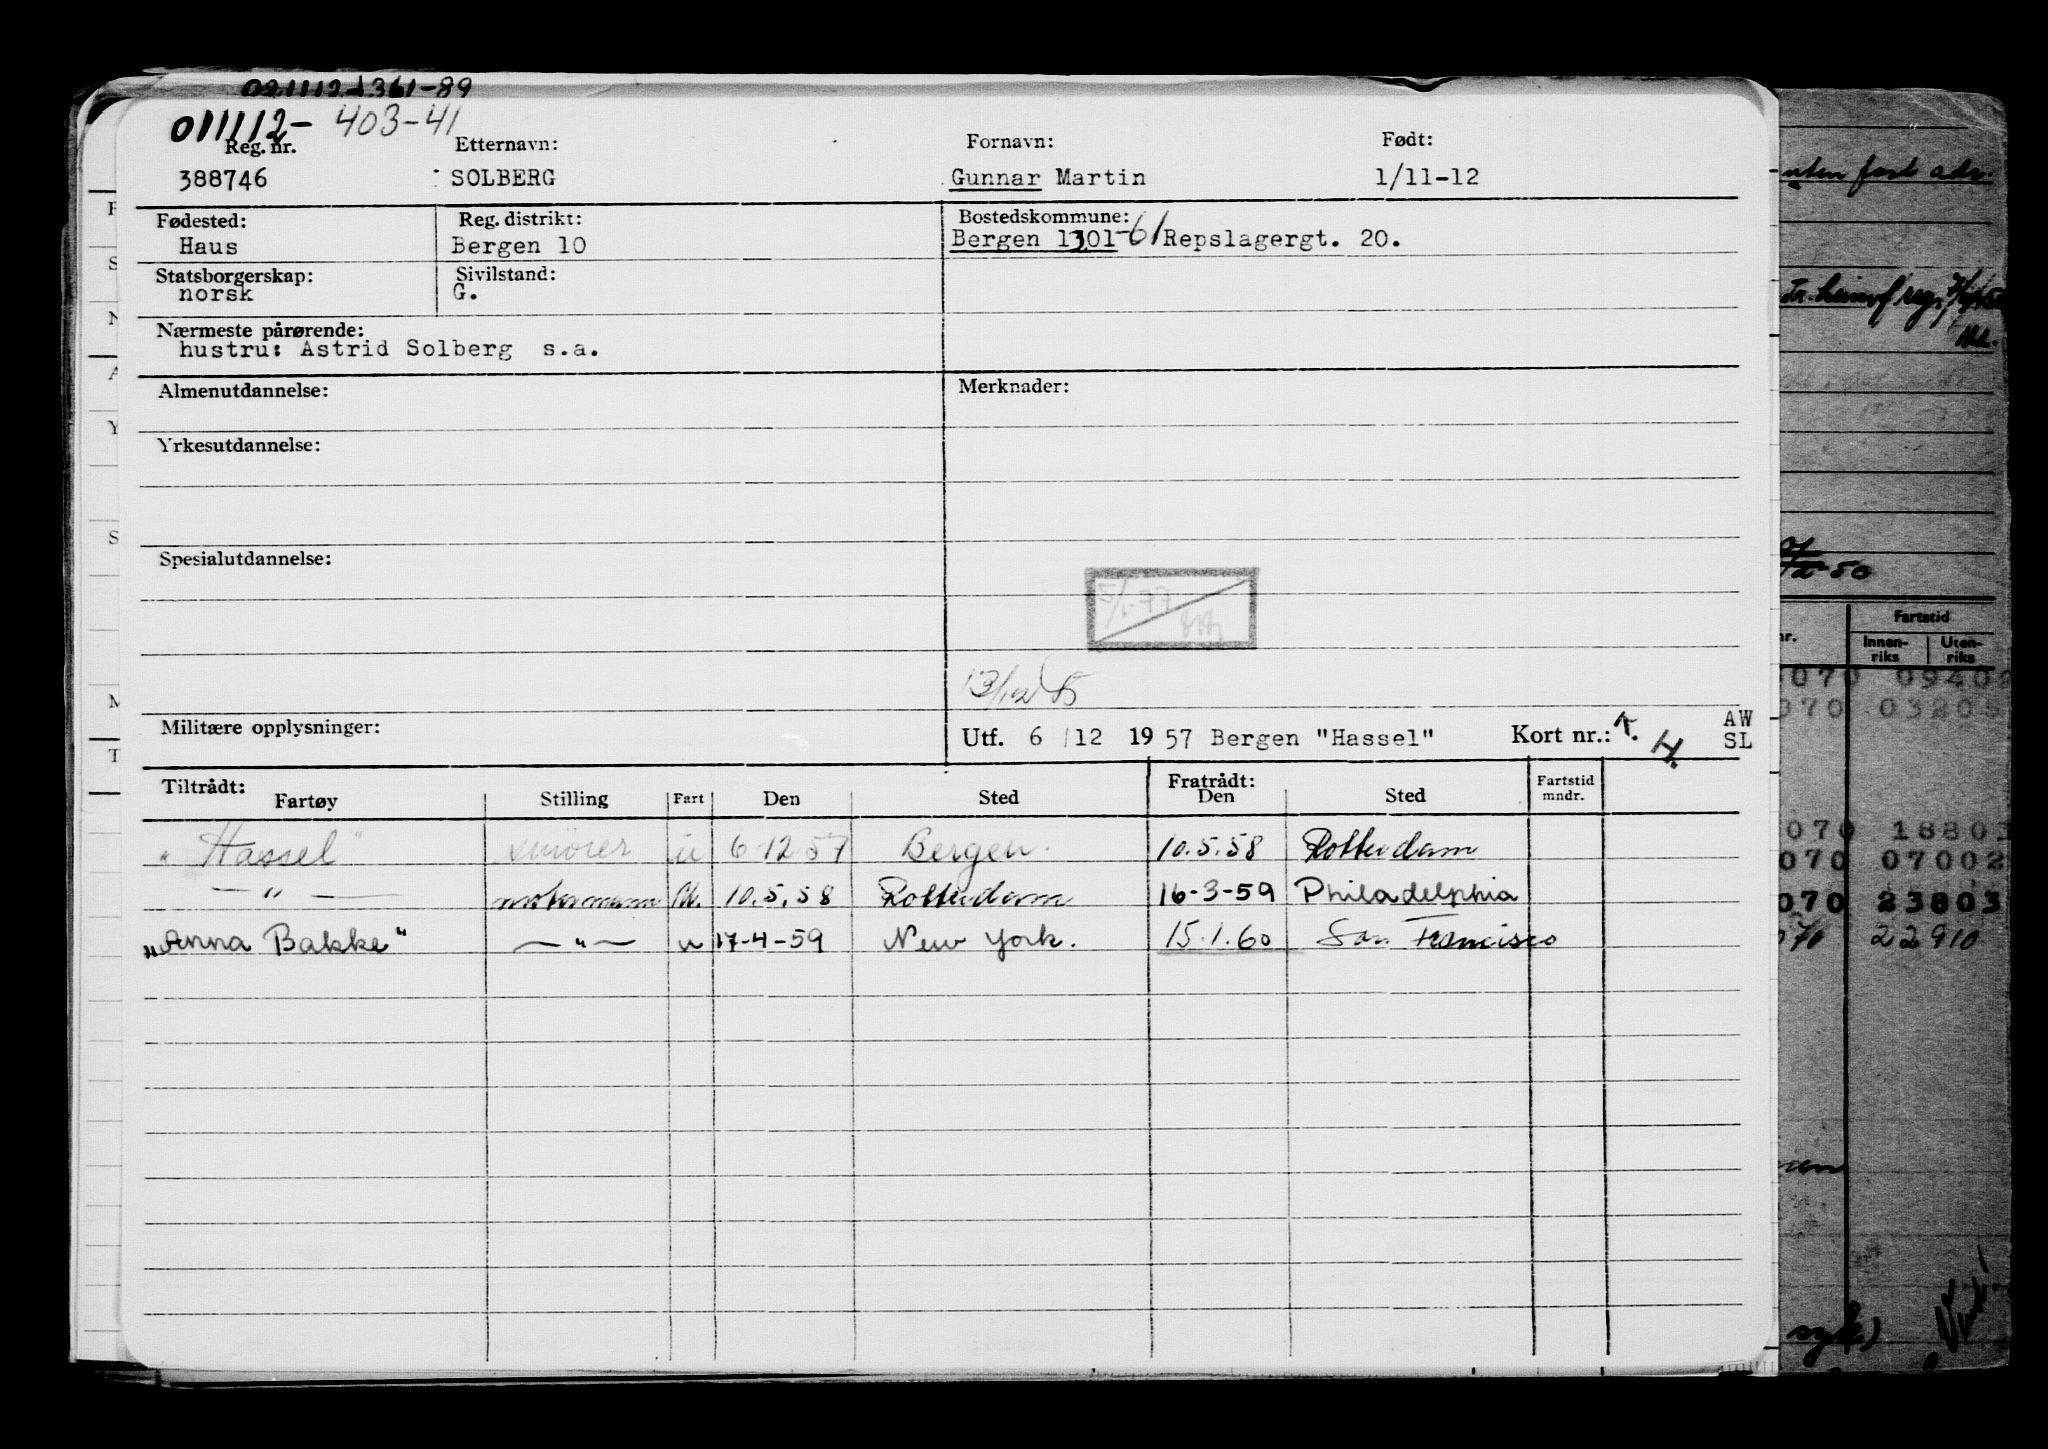 021112-361-89
011112- 403-41
Reg. nr. Etternavn: Fornavn: Født:
388746 SOLBERG Gunnar Martin 1/11-12
Fødested: Reg. distrikt: Bostedskommune:
Haus Bergen 10 Bergen 1301-61 Repslagergt. 20.
Statsborgerskap: Sivilstand:
norsk G.
Nærmeste pårørende:
hustru: Astrid Solberg s.a.
Almenutdannelse: Merknader:
Yrkesutdannelse:
Spesialutdannelse:
5/1-77
13/12 85
Militære opplysninger: Utf. 6/12 1957 Bergen "Hassel" Kort nr.: 1. H. AW SL
Tiltrådt: Fratrådt:
Fartøy Stilling Fart Den Sted Den Sted Fartstid mndr.
"Hassel" smører u 6-12-57 Bergen. 10.5.58 Rotterdam
— " — motormann u. 10.5.58 Rotterdam 16-3-59 Philadelphia
"Anna Bakke" — " — u 17-4-59 New York. 15.1.60 San Francisco
uten fast adr.
50
Fartstid
nr. Innen-riks Uten-riks
070 09402
070 03205
070 18803
070 07002
070 23803
70 22910
syk)